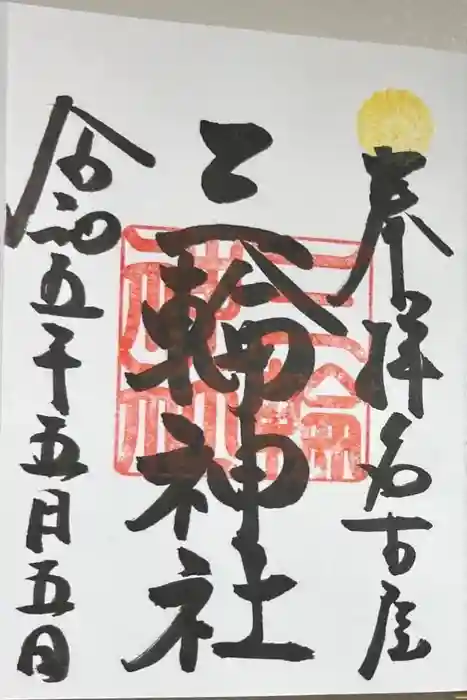 奉拝名古屋
三輪神社
令和五年五月五日
三輪神社